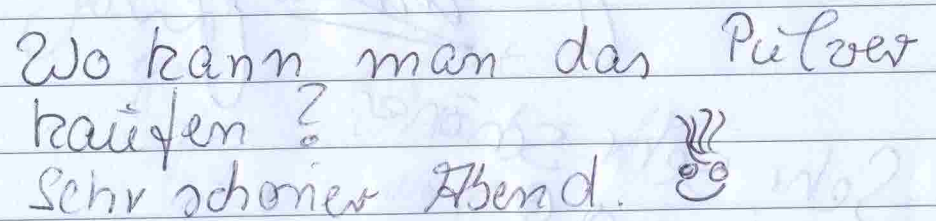 Wo kann man das Pulver
kaufen?
Sehr schöner Abend.